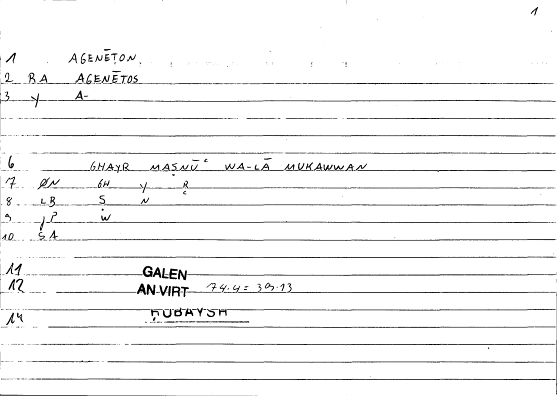 1
1 AGENĒTON
2 RA AGENĒTOS
3 Y A-
6 GHAYR MAṢNŪʿ WA-LĀ MUKAWWAN
7 ØN GH Y R
8 LB Ṣ N C
9 P W
10 ṢA
11 GALEN
12 AN VIRT 74.4 = 39.13
14 ḤUBAYSH